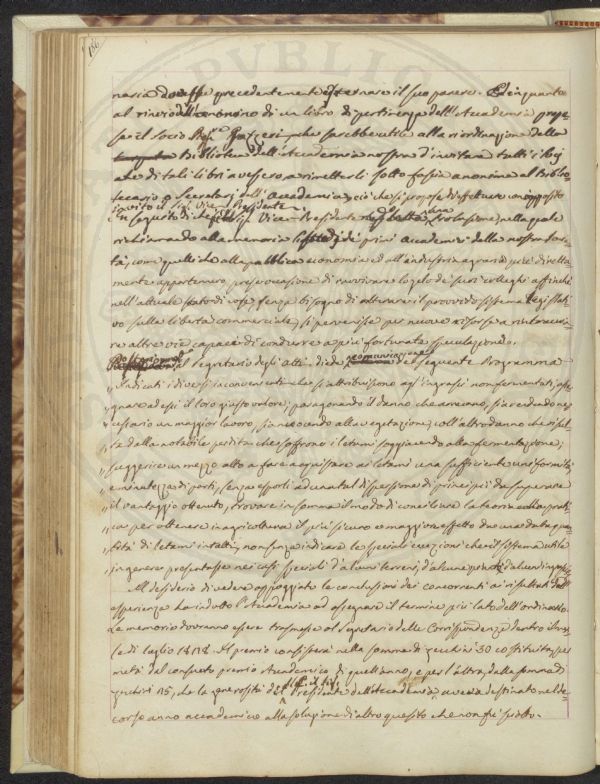 186
naria dovesse precedentemente esternare il suo parere. Ed in quanto
al rinvio dell'anonimo di un libro di pertinenza dell'Accademia propo-
se il Socio che sarebbe utile alla riordinazione della
Biblioteca dell'Accademia nostra d'invitare tutti i Soci
che di tali libri avessero, a rimetterli sotto fascia anonima al Biblio-
tecario o Segretari dell'Accademia, ciò che si propose d'effettuare con apposito
invito il Sig. Vice Presidente.
In seguito di che il Sig. Vice Presidente una Prolusione, nella quale
richiamando alla memoria de' primi Accademici della nostra Socie-
tà, come quelli che alla pubblica economia ed all'industria agraria più diretta-
mente appartenero, prese occasione di ravvivare lo zelo de' suoi colleghi affinchè
nell'attuale stato di cose, senza bisogno di alterare il provvido sistema legislati-
vo sulla libertà commerciale, si pervenisse per nuove risorse a rintraccia-
re altre vie capaci di condurre a più fortunate speculazioni.
il Segretario degli Atti, diede comunicazione del seguente Programma
„ Indicati i diversi inconvenienti che si attribuiscono agl'ingrassi non fermentati, asse-
„ gnare ad essi il loro giusto valore; paragonando il danno che arrecano, sia rendendo ne-
„ cessario un maggior lavoro, sia nuocendo alla vegetazione, coll'altro danno che risul-
„ ta dalla notabile perdita che soffrono i letami soggiacendo alla fermentazione;
„ suggerire un mezzo atto a fare acquistare ai letami una sufficiente uniformità
„ e minutezza di parti, senza esporli ad una tal dispersione di principii da superare
„ il vantaggio ottenuto; trovare insomma il modo di conciliare la teoria colla prati-
„ ca per ottenere in agricoltura il più sicuro e maggiore effetto da una data quan-
„ tità di letami intatti, non senza indicare le speciali eccezioni che il sistema utile
„ in genere presentasse nei casi speciali d'alcuni terreni, d'alcune piante, d'alcuni ingrassi.
Il desiderio di vedere appoggiate le conclusioni dei concorrenti ai risultati dell'
esperienza ha indotto l'Accademia ad assegnare il termine più lato dell'ordinario.
Le memorie dovranno essere trasmesse al Segretario delle Corrispondenze dentro il me-
se di luglio 1818. Il premio consisterà nella somma di zecchini 30 costituita per
metà dal consueto premio Accademico di quell'anno, e per l'altra dalla somma di
zecchini 15, che la generosità del Presidente dell'Accademia aveva destinato nel de-
corso anno accademico alla soluzione di altro quesito che non fu sciolto.